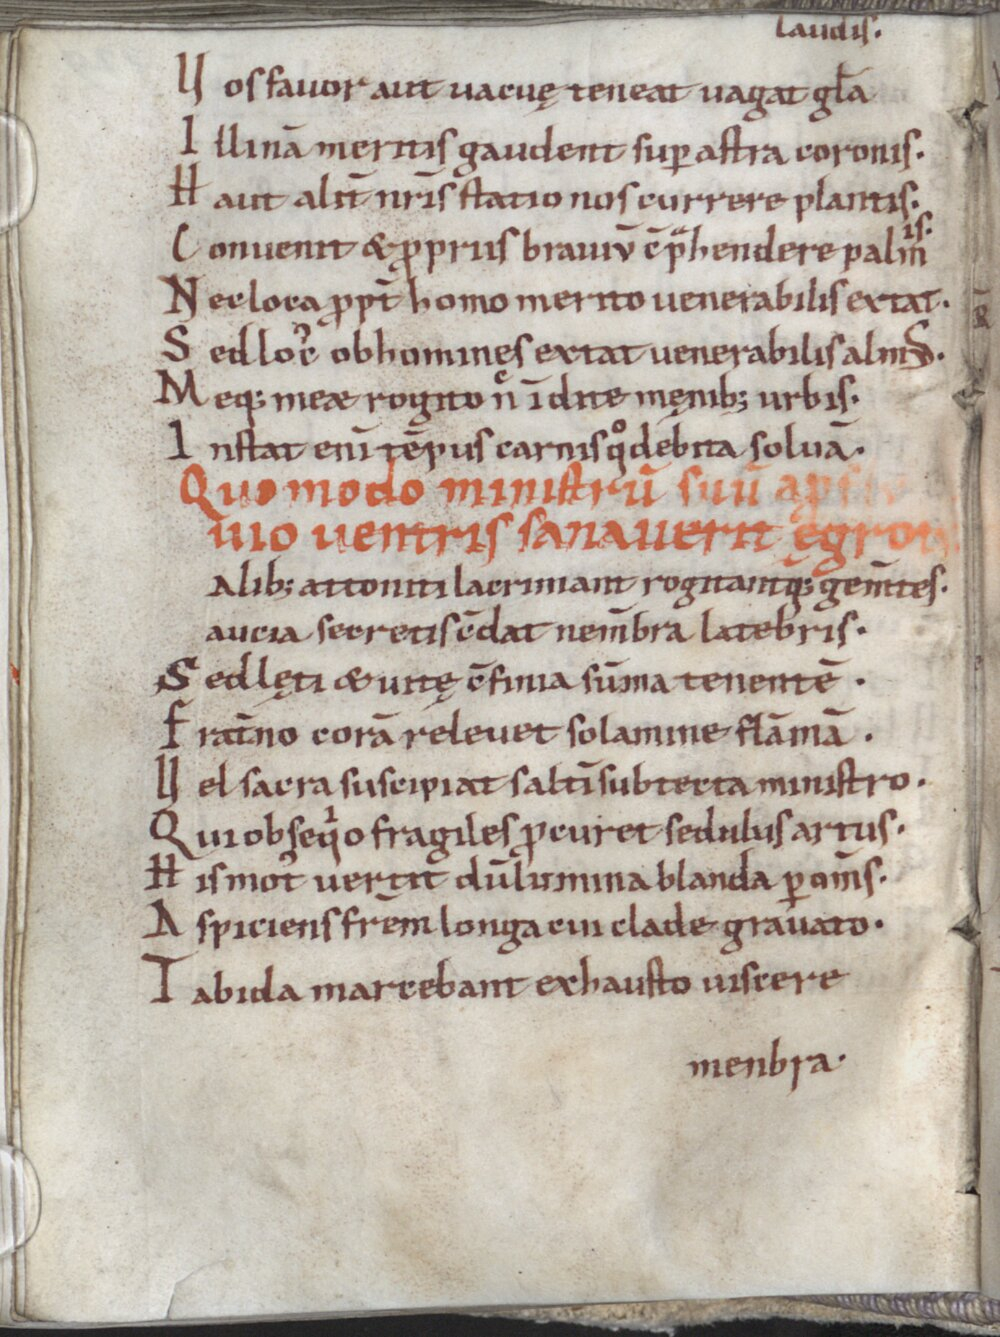 laudis.
V os fauor aut vacuę teneat uagat gła
I llinā meritis gaudent sup astra coronis.
H aut alit̄ nr̄is statio nos currere plantis.
C onuenit & ꝓpriis brauiū c̄p̄hendere palm̄is.
N ec loca ꝓpt̄ homo merito uenerabilis extat.
S ed loc᷒ ob homines extat uenerabilis alm᷒.
M eq; meæ rogito n̄ īdite męnib; urbis.
I nstat enī tēpus carnis qͦ debita soluā.
Quomodo ministrū suū
uio uentris sanauerit ęgrotū
Alib; attoniti lacrimant rogitantq; gem̄tes.
aucia secretis c̄dat nem̄bra latebris.
S ed lęti & uitę c̄finia sūma tenentē.
F rat̄no corā releuet solamine flāmā.
V el sacra suscipiat saltī sub tecta ministro.
Q ui obseqͥo fragiles ꝓcuret sedulus artus.
H is mot᷒ uertit dū lumina blanda ꝑ om̄s.
A spiciens frēm longa cui clade grauato.
T abida marcebant exhausto uiscere
menbra.